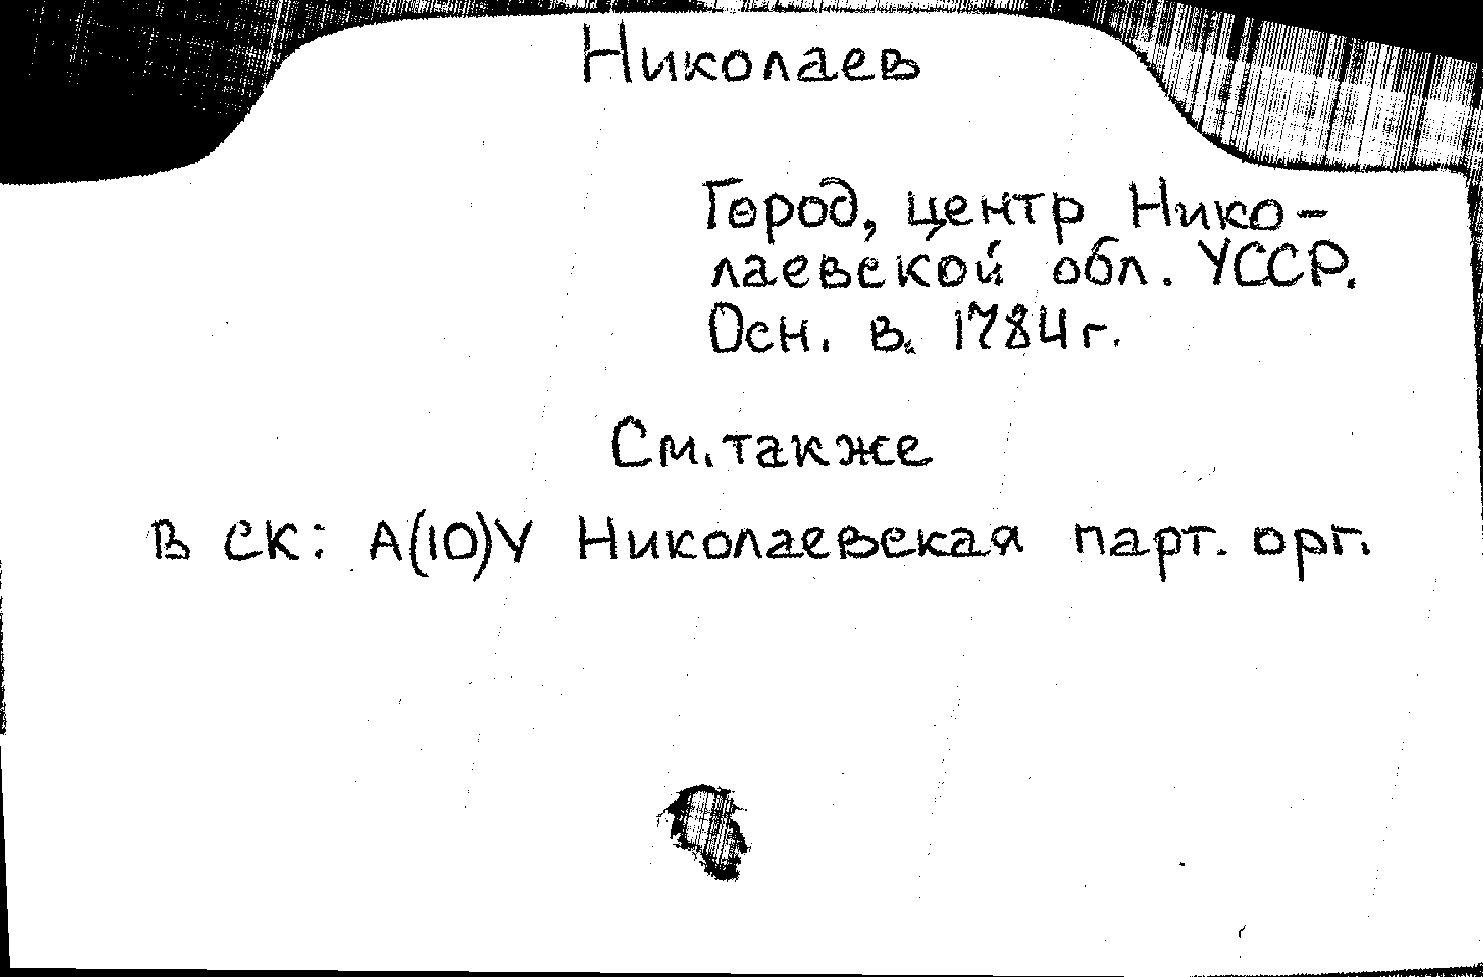 Николаев
Город, центр Нико-
лаевской обл. УССР.
Осн. в. 1784 г.
См. также
в СК: А(10)У Николаевская парт. орг.